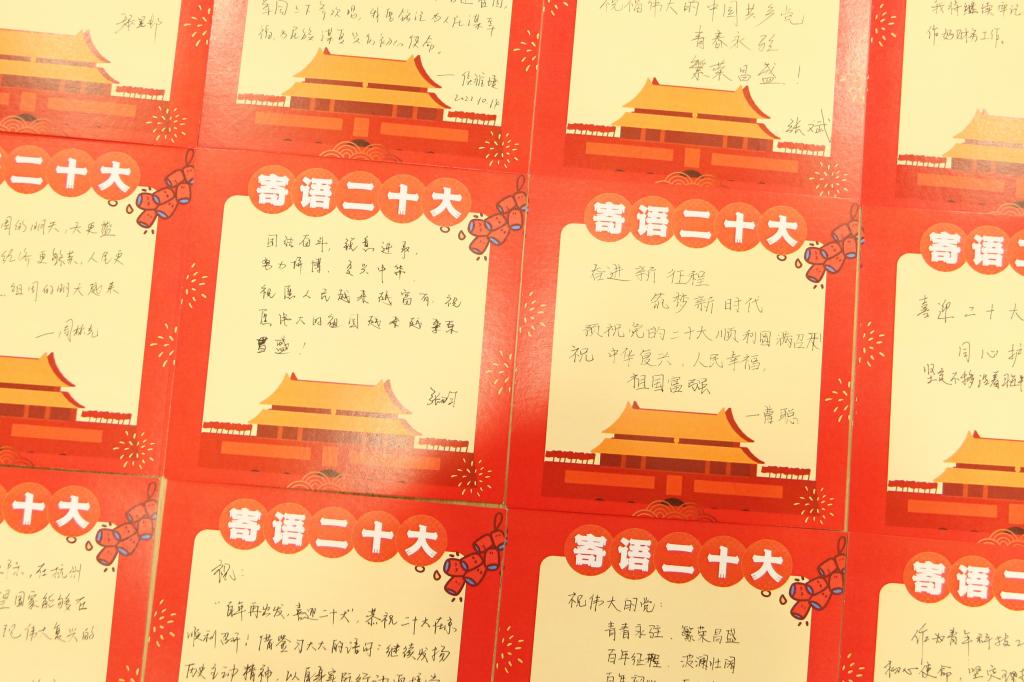 为民谋幸
初心使命。
2022.10.14
祝福伟大的中国共产党
青春永驻
繁荣昌盛!
张斌
我将继续牢记
作好财务工作。
二十大
国的明天,天更蓝
经济更繁荣,人民更
祖国的明天越来
寄语二十大
团结奋斗,锐意进取
努力拼搏,复兴中华
祝愿人民越来越富有,祝
愿伟大的祖国越来越繁荣
昌盛!
寄语二十大
奋进新征程
筑梦新时代
预祝党的二十大顺利圆满召开!
祝中华复兴,人民幸福,
祖国富强
—曹聪
寄语二
喜迎二十大
同心护
十大
在杭州
望国家能够在
伟大复兴的
寄语二十大
祝:
"百年再出发,喜迎二十大",恭祝二十大在京
顺利召开!借鉴习大大的话问:继续发扬
历史主动精神,以自身实际行动
寄语二十大
祝伟大的党:
青春永驻、繁荣昌盛
百年征程、波澜壮阔
百年初心
寄语二
作为青年科技工
初心使命,坚定理想